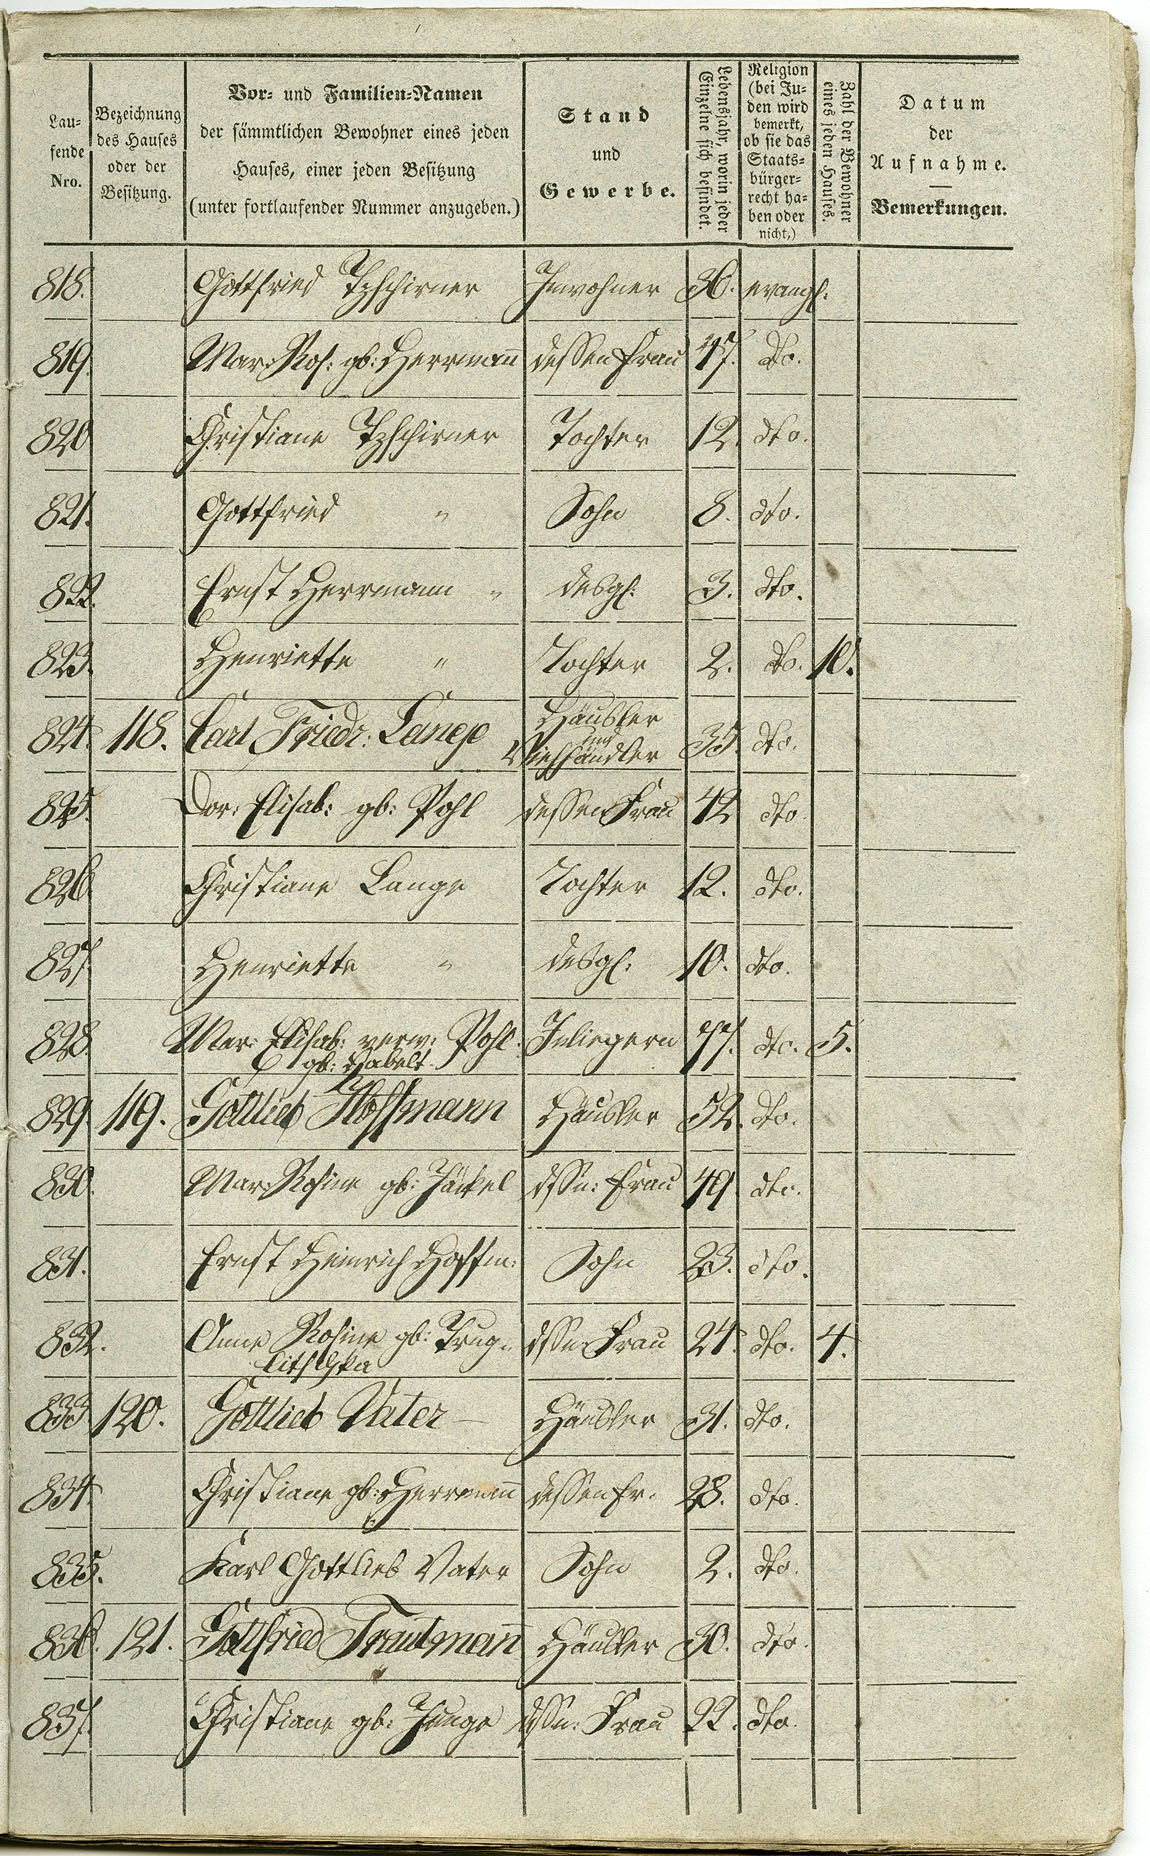 Lau-
fende
Nro.
Bezeichnung
des Hauses
oder der
Besitzung.
Vor- und Familien-Namen
der sämmtlichen Bewohner eines jeden
Hauses, einer jeden Besitzung
(unter fortlaufender Nummer anzugeben.)
Stand
und
Gewerbe.
Lebensjahr, worin jeder
Einzelne sich befindet.
Religion
(bei Ju-
den wird
bemerkt,
ob sie das
Staats-
bürger-
recht ha-
ben oder
nicht,)
Zahl der Bewohner
eines jeden Hauses.
Datum
der
Aufnahme.
Bemerkungen.
818. Gottfried Tzschirner Inwohner 36. evangl.
819. Mar: Ros: gb: Herrmann dessen Frau 47. dto.
820 Christiane Tzschirner Tochter 12. dto.
821. Gottfried " Sohn 8. dto.
822. Ernst Herrmann " desgl: 3. dto.
823. Henriette " Tochter 2. dto. 10.
824. 118. Carl Friedr: Lange Häusler und Viehhändler 35 dto.
825. Dor: Elisab: gb: Pohl dessen Frau 42 dto
826 Christiane Lange Tochter 12. dto.
827. Henriette " desgl: 10. dto.
828 Mar: Elisab: verw: Pohl Inliegern 77. dto. 5.
gb:
829. 119. Gottlieb Hoffmann Häusler 52. dto.
830. Mar: Rosine gb: Jäckel dssn: Frau 49 dto.
831. Ernst Heinrich Hoffm: Sohn 23. dto.
832. Anne Rosine gb: dssn Frau 24. dto. 4.
833 120. Gottlieb Vater Häusler 31. dto.
834. Christiane gb: Herrmann dessen Fr. 28. dto.
835. Karl Gottlieb Vater Sohn 2. dto.
836. 121. Gottfried Trautmann Häusler 30. dto.
837. Christiane gb: Junge dssn: Frau 22. dto.